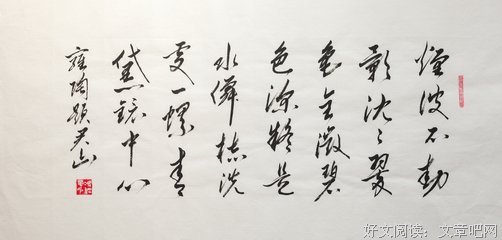 煙波不動
影沈々翠
色全微碧
色深疑是
水僊梳洗
處一螺青
黛鏡中心
雍陶題君山
好文阅读：文章吧网